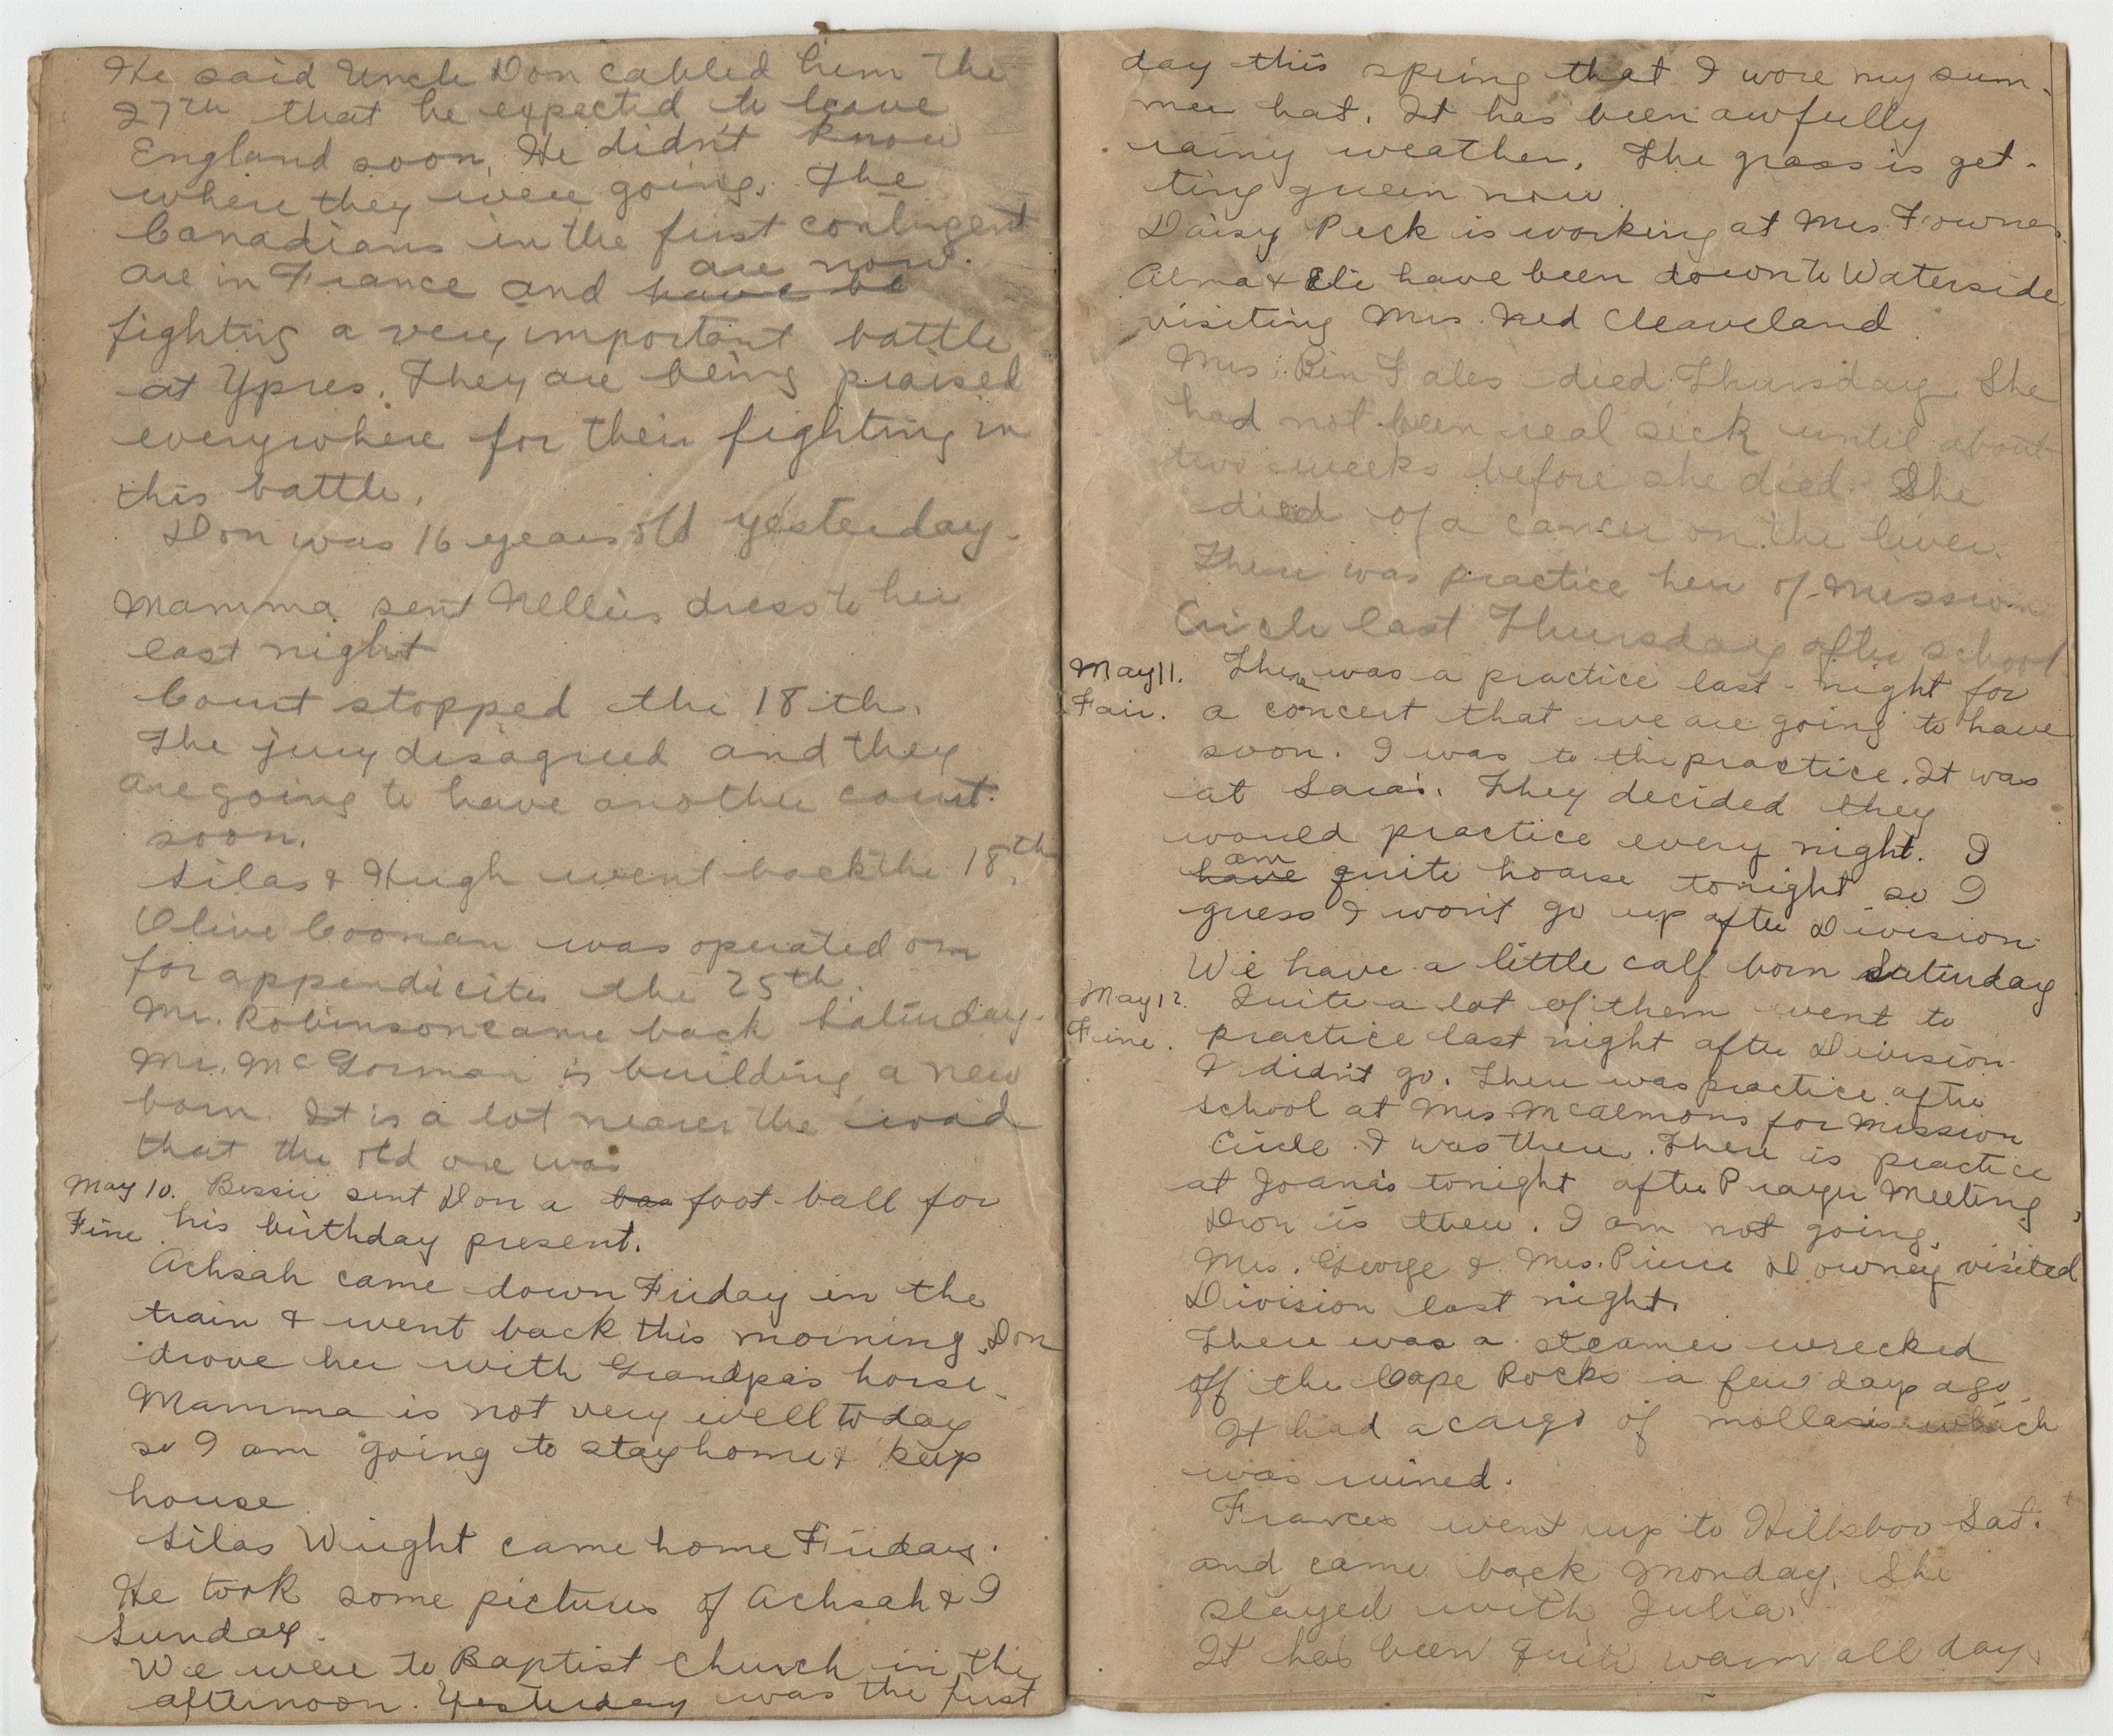 He said Uncle Don cabled him the
27th that he expected to leave
England soon. He didn't know
where they were going. The
Canadians in the first contingent
are now.
are in France and have be
fighting a very important battle
at Ypres. They are being praised
everywhere for their fighting in
this battle.
Don was 16 years old yesterday.
Mamma sent Nellie's dress to her
last night
Court stopped the 18th.
The jury disagreed and they
are going to have another court
soon.
Silas & Hugh went back the 18th.
Olive Coonan was operated on
for appendicitis the 25th.
Mr. Robinson came back Saturday.
Mr. McGorman is building a new
barn. It is a lot nearer the road
that the old one was
May 10. Bessie sent Don a baa foot-ball for
Fine. his birthday present.
Achsah came down Friday in the
train & went back this morning. Don
drove her with Grandpa's horse.
Mamma is not very well today
so I am going to stay home & keep
house.
Silas Wright came home Friday.
He took some pictures of Achsah & I
Sunday.
We were to Baptist Church in the
afternoon. Yesterday was the first
day this spring that I wore my sum-
mer hat. It has been awfully
rainy weather. The grass is get-
ting green now.
Daisy Peck is working at Mrs. Fownes.
Alma & Eli have been down to Waterside
visiting Mrs. Ned Cleaveland
Mrs. Ben Fales died Thursday. She
had not been real sick until about
two weeks before she died. She
died of a cancer on the liver.
There was practice here of Mission
Circle last Thursday after school
May 11. There was a practice last night for
Fair. a concert that we are going to have
soon. I was to the practice. It was
at Sara's. They decided they
would practice every night. I
am
have quite hoarse tonight so I
guess I won't go up after Division
We have a little calf born Saturday.
May 12. Quite a lot of them went to
Fine. practice last night after Division.
I didn't go. There was practice after
school at Mrs. McAlmons for Mission
Circle. I was there. There is practice
at Joana's tonight after Prayer Meeting,
Don is there. I am not going.
Mrs. George & Mrs. Pierce Downey visited
Division last night.
There was a steamer wrecked
off the Cape Rocks a few days ago.
It had a cargo of mollasis which
was ruined.
Frances went up to Hillsboro Sat.
and came back Monday. She
stayed with Julia.
It has been quite warm all day.